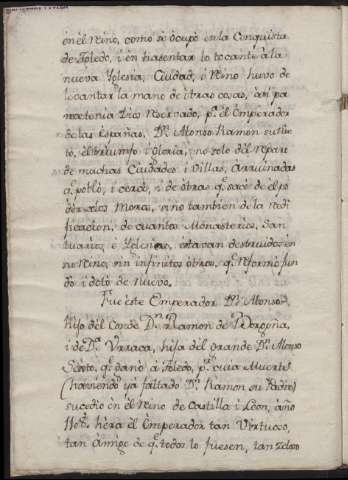 en el Reino, como se ocupó en la Conquista
de Toledo, i en hasentar lo tocante à la
nueva Iglesia, Ciudad, i Reino huvo de
levantar la mano de otras cosas, así pa
rece tenia Dios reservado, pª el Emperador
de las Españas, Dn Alonso Ramon su nie
to, el triumfo i Gloria, no solo del reparo
de muchas Ciudades i Villas, arruinadas
q poblò, i cercò, i de otras q sacò del po
der de los Moros, sino tambien de la redi
ficacion, de quantos Monasterios, San
tuarios, è Iglesias, estavan destruidos en
su Reino, sin infinitos otros, q reformò fun
dò i dotò de nuevo.
Fue este Emperador Dn Alonso
hijo del Conde Dn Ramon de Borgoña,
i de Dª Urraca, hija del Grande Dn Alonso
Sexto, q ganò à Toledo, pr cuia Muerte
(haviendo ya faltado Dn Ramon su Padre)
sucediò en el Reino de Castilla i Leon, año
hera el Emperador tan Virtuoso,
tan Amigo de q todos lo fuesen, tan zeloso